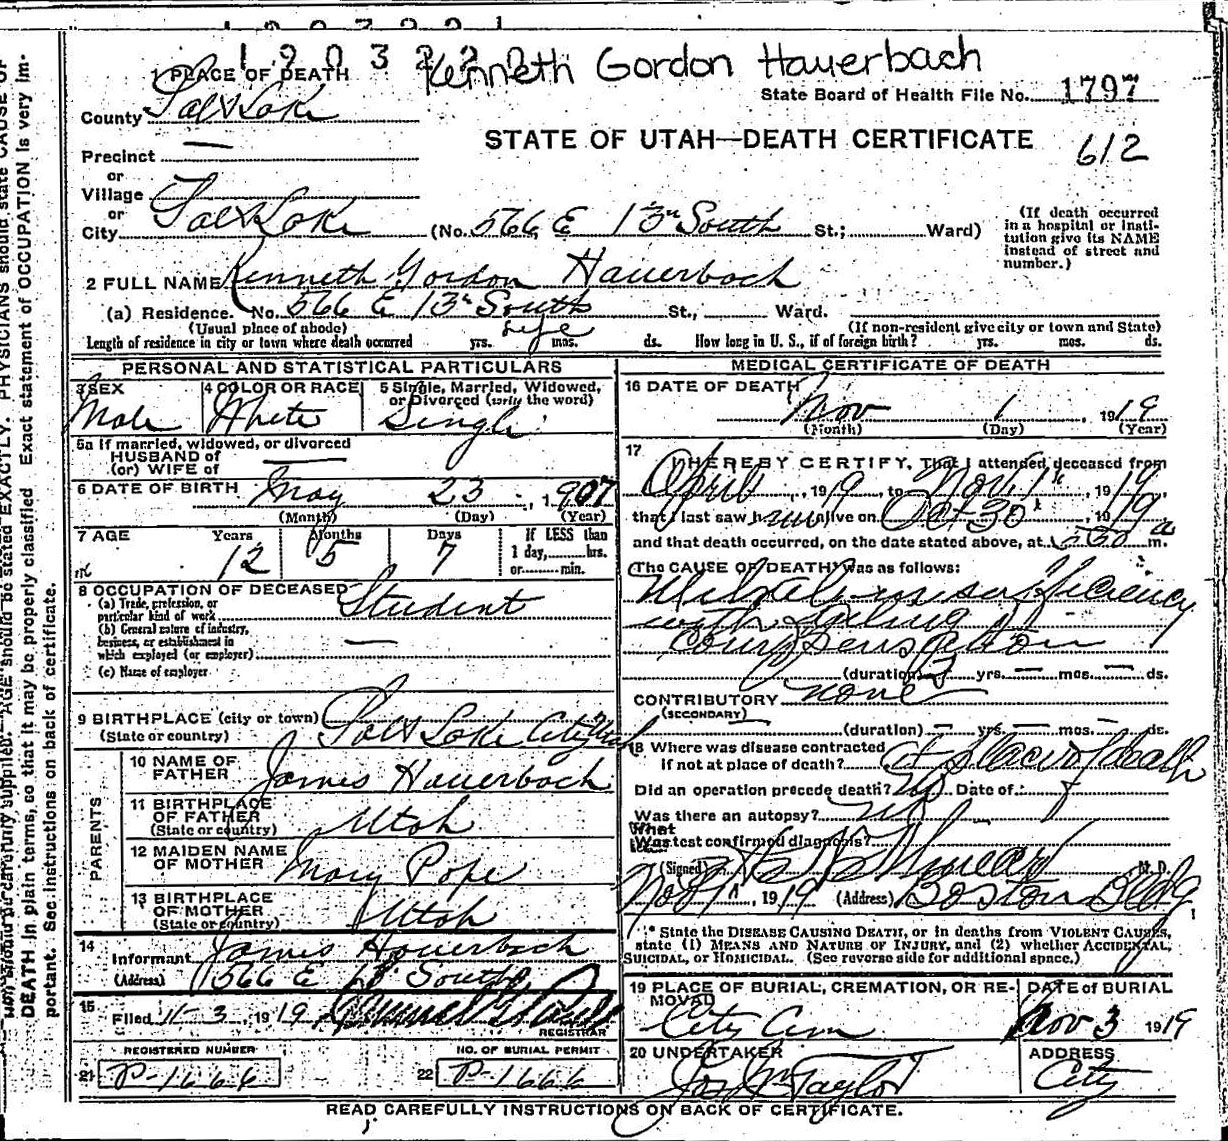 1 2 0 3 2 2
Kenneth Gordon Hauerbach
1 PLACE OF DEATH
State Board of Health File No. 1797
County Salt Lake
STATE OF UTAH—DEATH CERTIFICATE
612
Precinct —
or
Village
or
City Salt Lake (No. 566 E 13th South St.; Ward)
(If death occurred in a hospital or institution give its NAME instead of street and number.)
2 FULL NAME Kenneth Gordon Hauerbach
(a) Residence. No. 566 E 13th South St., Ward.
(Usual place of abode) (If non-resident give city or town and State)
Length of residence in city or town where death occurred life yrs. mos. ds. How long in U. S., if of foreign birth? yrs. mos. ds.
PERSONAL AND STATISTICAL PARTICULARS
3 SEX Male
4 COLOR OR RACE White
5 Single, Married, Widowed, or Divorced (write the word) Single
5a If married, widowed, or divorced
HUSBAND of
(or) WIFE of —
6 DATE OF BIRTH May 23, 1907
(Month) (Day) (Year)
7 AGE Years 12 Months 5 Days 7
If LESS than
1 day, hrs.
or min.
8 OCCUPATION OF DECEASED
(a) Trade, profession, or
particular kind of work Student
(b) General nature of industry,
business, or establishment in
which employed (or employer) —
(c) Name of employer
9 BIRTHPLACE (city or town) Salt Lake City Utah
(State or country)
PARENTS
10 NAME OF
FATHER James Hauerbach
11 BIRTHPLACE
OF FATHER
(State or country) Utah
12 MAIDEN NAME
OF MOTHER Mary Pope
13 BIRTHPLACE
OF MOTHER
(State or country) Utah
14 Informant James Hauerbach
(Address) 566 E 13 South
15 Filed 11-3, 1919
REGISTRAR
REGISTERED NUMBER
21 P-1666
NO. OF BURIAL PERMIT
22 P-1666
MEDICAL CERTIFICATE OF DEATH
16 DATE OF DEATH
Nov 1, 1919
(Month) (Day) (Year)
17 I HEREBY CERTIFY, That I attended deceased from
April, 1919, to Nov. 1st, 1919,
that I last saw him alive on Oct 30th, 1919
and that death occurred, on the date stated above, at m.
The CAUSE OF DEATH* was as follows:
Mitral insufficiency
with failing of
compensation
(duration) yrs. — mos. — ds.
CONTRIBUTORY none
(SECONDARY)
(duration) — yrs. — mos. — ds.
18 Where was disease contracted
If not at place of death? at place of death
Did an operation precede death? no Date of
Was there an autopsy? no
What
test confirmed diagnosis?
(Signed) M. D.
Nov 1st, 1919 (Address) Boston Bldg
* State the DISEASE CAUSING DEATH, or in deaths from VIOLENT CAUSES,
state (1) MEANS AND NATURE OF INJURY, and (2) whether ACCIDENTAL,
SUICIDAL, or HOMICIDAL. (See reverse side for additional space.)
19 PLACE OF BURIAL, CREMATION, OR REMOVAL
City Cem
DATE of BURIAL
Nov 3 1919
20 UNDERTAKER
Jos Wm Taylor
ADDRESS
City
READ CAREFULLY INSTRUCTIONS ON BACK OF CERTIFICATE.
supplied. AGE should be stated EXACTLY. PHYSICIANS should state CAUSE OF
DEATH in plain terms, so that it may be properly classified. Exact statement of OCCUPATION is very important. See instructions on back of certificate.